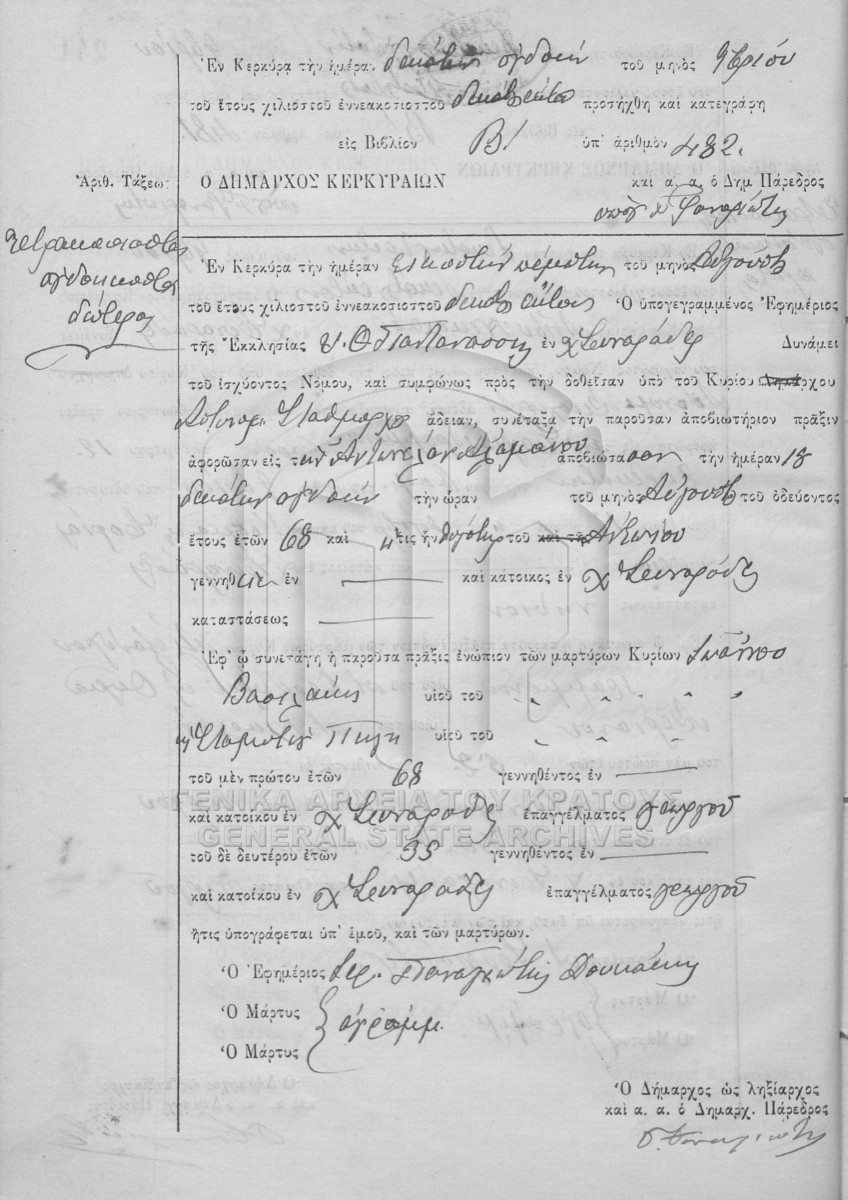 Ἐν Κερκύρᾳ τὴν ἡμέραν δεκάτην ὀγδόην τοῦ μηνὸς 9βρίου
τοῦ ἔτους χιλιοστοῦ ἐννεακοσιοστοῦ δεκάτου ἕκτου προσήχθη καὶ κατεγράφη
εἰς Βιβλίον Β! ὑπ' ἀριθμὸν 482.
Ἀριθ. Τάξεως Ο ΔΗΜΑΡΧΟΣ ΚΕΡΚΥΡΑΙΩΝ καὶ α. α. ὁ Δημ Πάρεδρος
Τετρακοσιοστὸς
ὀγδοηκοστὸς
δεύτερος
Ἐν Κερκύρᾳ τὴν ἡμέραν εἰκοστὴν πέμπτην τοῦ μηνὸς Αὐγούστου
τοῦ ἔτους χιλιοστοῦ ἐννεακοσιοστοῦ δεκάτου ἕκτου Ὁ ὑπογεγραμμένος Ἐφημέριος
τῆς Ἐκκλησίας Υ. Θ. Παντανάσσης ἐν χ Σιναράδες Δυνάμει
τοῦ ἰσχύοντος Νόμου, καὶ συμφώνως πρὸς τὴν δοθεῖσαν ὑπὸ τοῦ Κυρίου Δημάρχου
Ἀστυνομ. Σταθμάρχου ἄδειαν, συνέταξα τὴν παροῦσαν ἀποβιωτήριον πρᾶξιν
ἀφορῶσαν εἰς τὴν ἀποβιώσασαν τὴν ἡμέραν 18
δεκάτην ὀγδόην τὴν ὥραν τοῦ μηνὸς Αὐγούστου τοῦ ὁδεύοντος
ἔτους ἐτῶν 68 καὶ ἥτις ἦν θυγάτηρ τοῦ καὶ τῆς Ἀντωνίου
γεννηθ ἐν καὶ κάτοικος ἐν χ Σιναράδες
καταστάσεως
Ἐφ' ᾧ συνετάγη ἡ παροῦσα πρᾶξις ἐνώπιον τῶν μαρτύρων Κυρίων Ἰωάννου
Βασιλάκη υἱοῦ τοῦ " " " " "
κ Σταματίου υἱοῦ τοῦ " " " "
τοῦ μὲν πρώτου ἐτῶν 68 γεννηθέντος ἐν
ΓΕΝΙΚΑ ΑΡΧΕΙΑ ΤΟΥ ΚΡΑΤΟΥΣ
καὶ κατοίκου ἐν χ Σιναράδες ἐπαγγέλματος γεωργοῦ
GENERAL STATE ARCHIVES
τοῦ δὲ δευτέρου ἐτῶν 35 γεννηθέντος ἐν
καὶ κατοίκου ἐν χ Σιναράδες ἐπαγγέλματος γεωργοῦ
ἥτις ὑπογράφεται ὑπ' ἐμοῦ, καὶ τῶν μαρτύρων.
Ὁ Ἐφημέριος Ἱερ. Παναγιώτης Δουκάκης
Ὁ Μάρτυς ἀγράμμ.
Ὁ Μάρτυς
Ὁ Δήμαρχος ὡς ληξίαρχος
καὶ α. α. ὁ Δημαρχ. Πάρεδρος